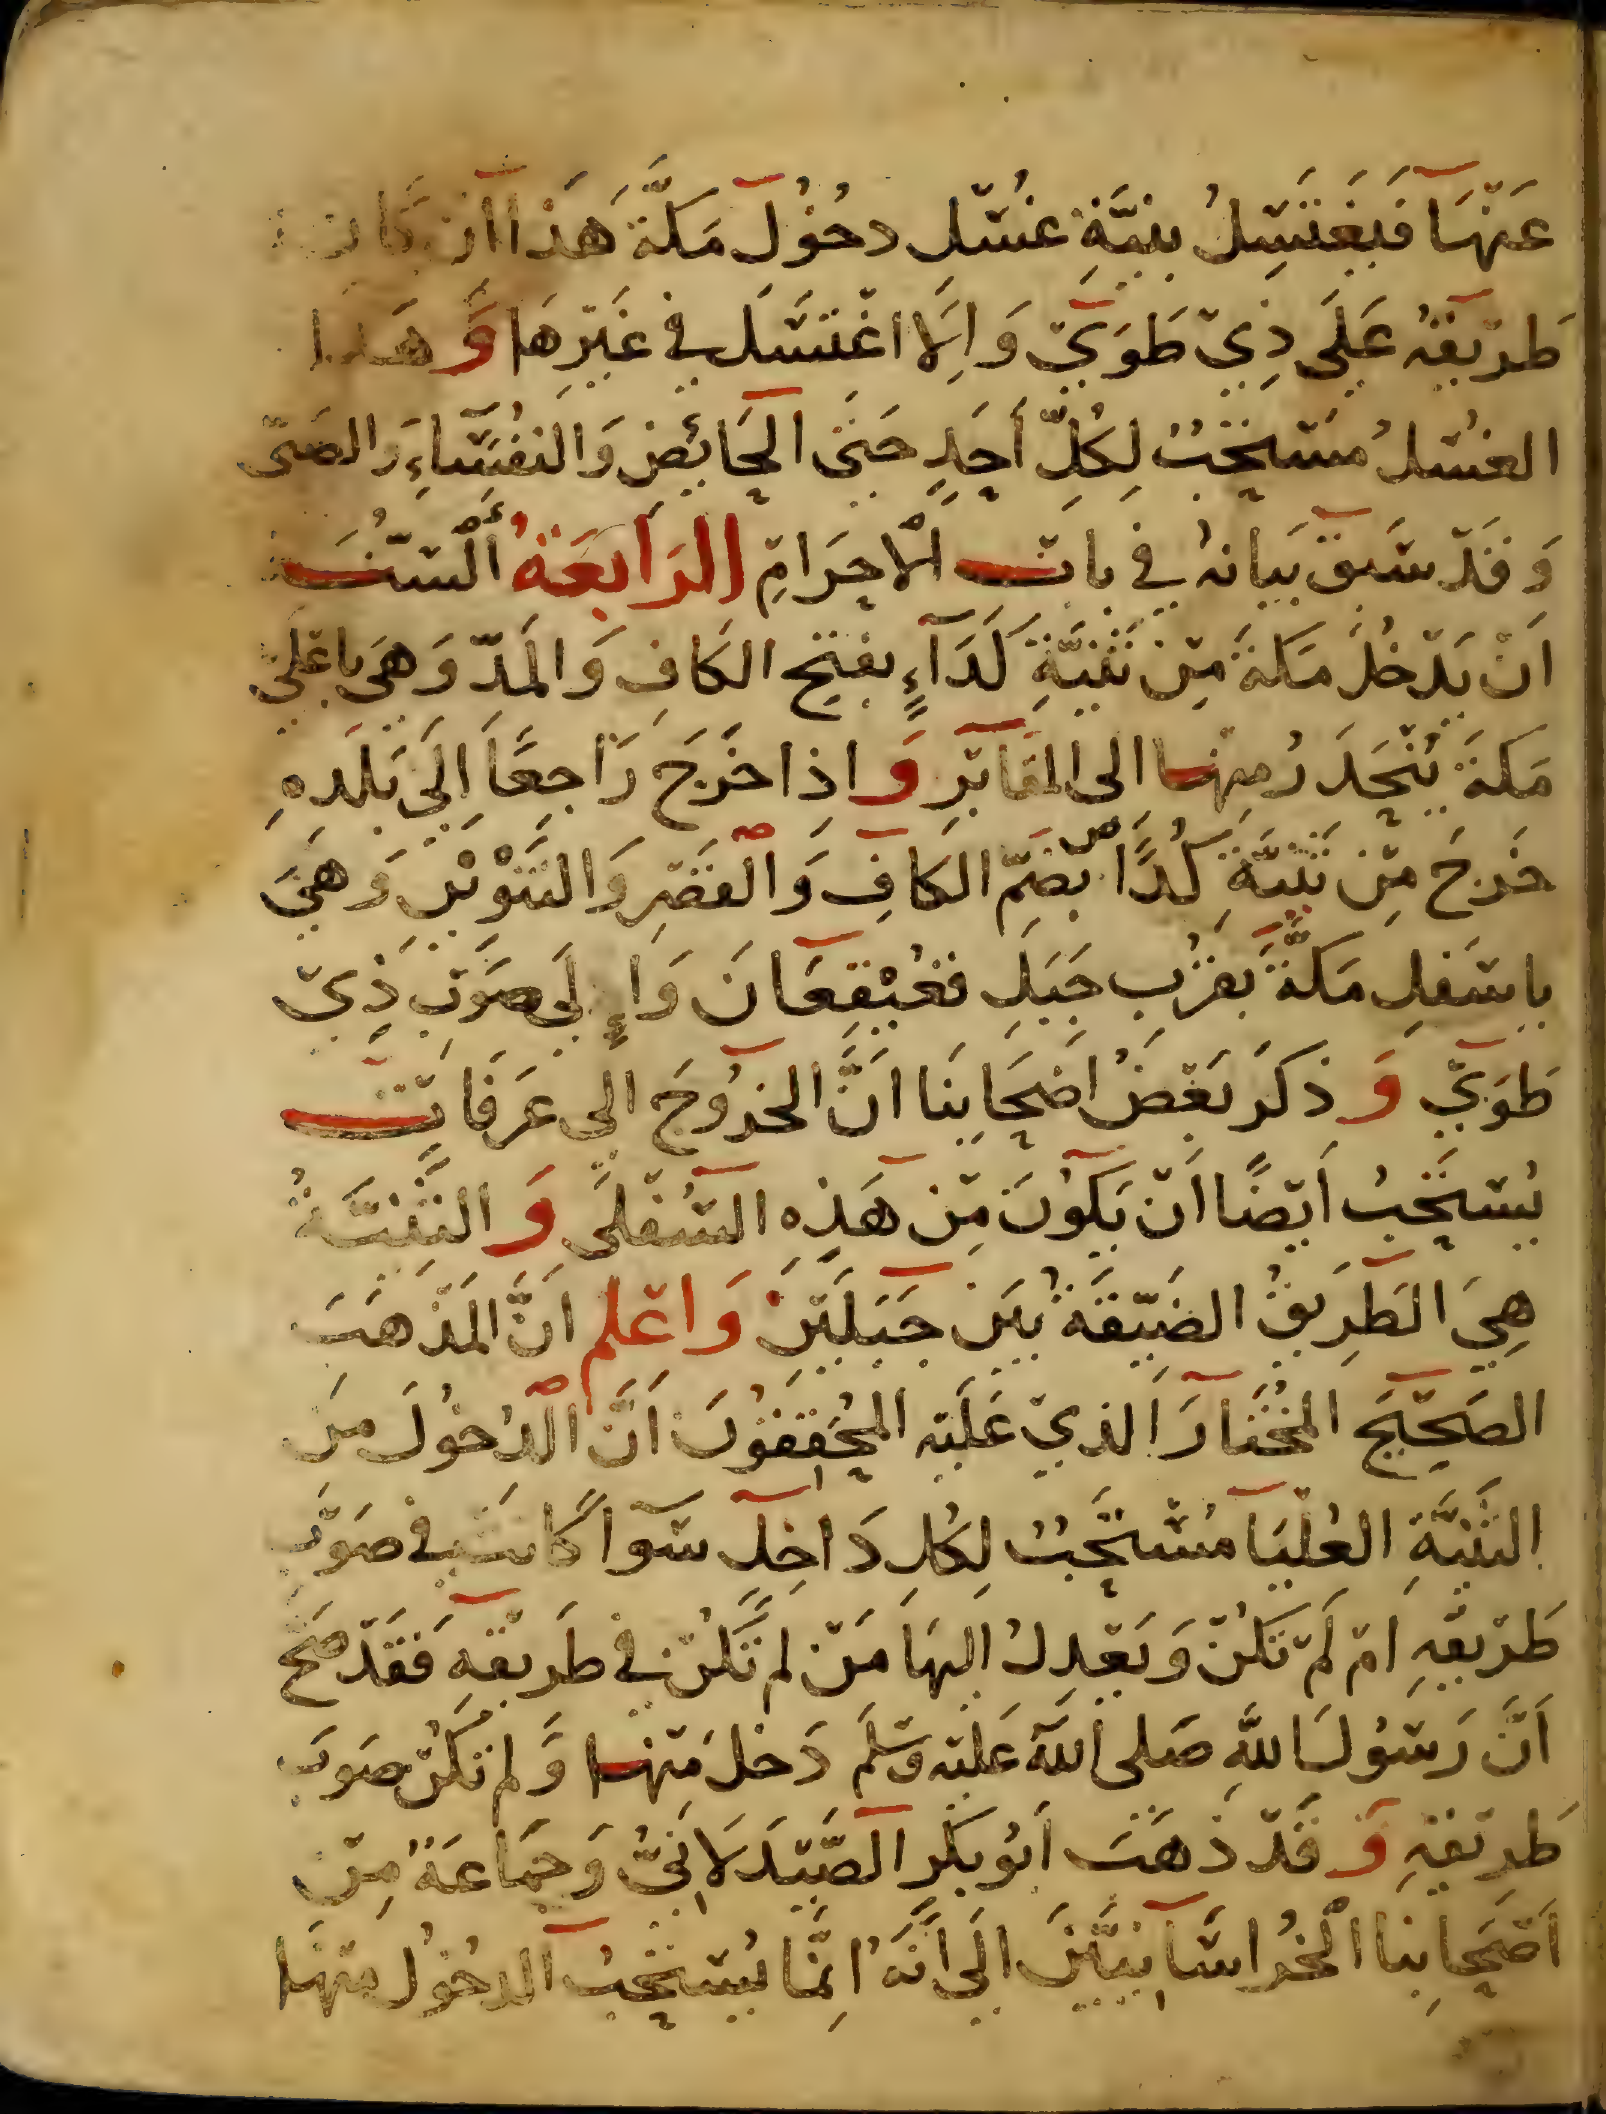 عَنْهَا فَيَغْتَسِلُ بِنِيَّةِ غُسْلِ دخُولَ مَكَّةَ هَذَا اِن كَانَ
طَرِيْقُهُ عَلَى ذِيْ طَوَيْ وَاِلَّا اغْتَسَلَ في غَيْرِهَا وَهَذا
الغُسْلُ مُسْتَحَبُّ لِكُلِّ اَحَدٍ حَتَى الحَائِضِ وَالنُفَسَاءِ وَالصَبيّ
وَقَدْ سَبَقَ بَيَانهُ في بابِ الْاِحرَامِ الرَابِعَةُ السُّنَّة
اَنْ يَدْخُلَ مَكةَ مِنْ ثَنِيَّةِ كَدَآءٍ بفتحِ الكَافِ وَالمَدّ وَهيَ باعْلَى
مَكةَ يُنْحَدَرُ مِنْهَا الى المَقَابْرِ وَاِذا خَرَجَ رَاجِعًا اِلَى بَلَدهِ
خَرَجَ مِنْ ثَنِيَّةِ كُدًا بضَمّ الكَافِ وَالْقَصْرِ وَالتَنْوِيْنِ وَهيَ
باسْفَلِ مَكَّةَ بقُرْبِ جَبَلِ قُعَيْقِعَانَ وَاِلَى صَوْبِ ذِيْ
طَوَيْ وَذكَرَ بَعْضُ اَصْحَابِنَا اَنَّ الخرُوجَ الي عَرَفَاتٍ
يُسْتَحَبُ اَيْضًا اَنْ يَكُونَ مِنْ هَذِهِ السُفْلَى وَالثَنِيَّةُ
هِيَ الطَرِيْقُ الضَيّقَةُ بَيْنَ جَبَلَيْنِ وَاعْلم اَنَّ المَذْهَبَ
الصَحِيْحَ المُخْتَارَ الذِيْ عَلَيْهِ المُحَقِقُونَ اَنَّ الْدُخُولَ مِنَ
الثَنِيَّةِ العُلْيَا مُسْتَحَبُّ لِكُلِ دَاخِلٍ سَوَآ كَانَتْ في صَوْبِ
طَرِيْقِهِ امْ لَمْ تَكُنْ وَيَعْدِلُ اليهَا مَنْ لم تَكُنْ في طَرِيقِهِ فَقَدْ صَحَّ
اَنَّ رَسُولَ اللهِ صَلى اللهُ عَلَيْهِ وَسَلمَ دَخلَ مِنْهَا وَلم تَكُنْ صَوبَ
طَرِيْقِهِ وَقَدْ ذهَبَ اَبُو بَكْرٍ الصَّيْدَلَانِيُّ وَجَمَاعَةٌ مِنْ
اَصْحَابِنا الْخُراسَانِيِّيْنَ اِلَى اَنَّهُ اِنَّمَا يُسْتَحَبُ الدخُولُ مِنْهَا